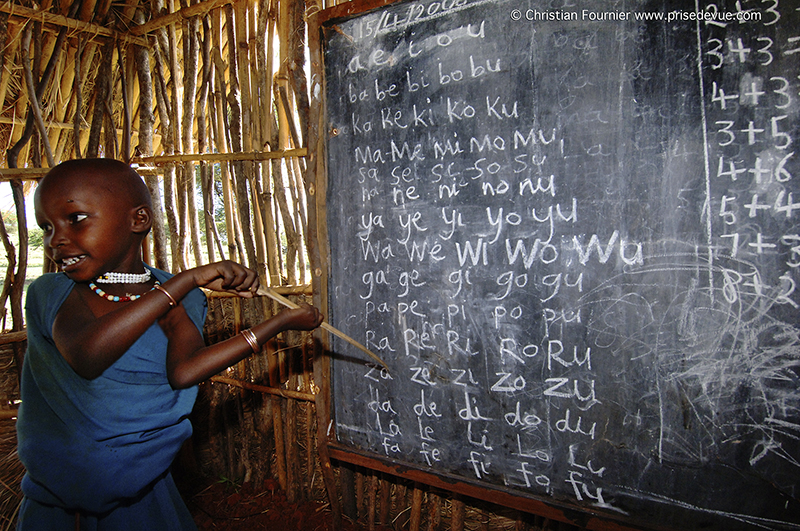 © Christian Fournier www.prisedevue.com
15/4/200
a e i o u
ba be bi bo bu
Ka Ke ki Ko Ku
Ma Me Mi Mo Mu
sa se si so su
na ne ni no nu
ya ye yi yo yu
Wa We Wi Wo Wu
ga ge gi go gu
pa pe pi po pu
Ra Re Ri Ro Ru
za ze zi zo zu
da de di do du
La Le Li Lo Lu
fa fe fi fo fu
2+3
3+3=
4+3
3+5
4+6
5+4
7+
8+2